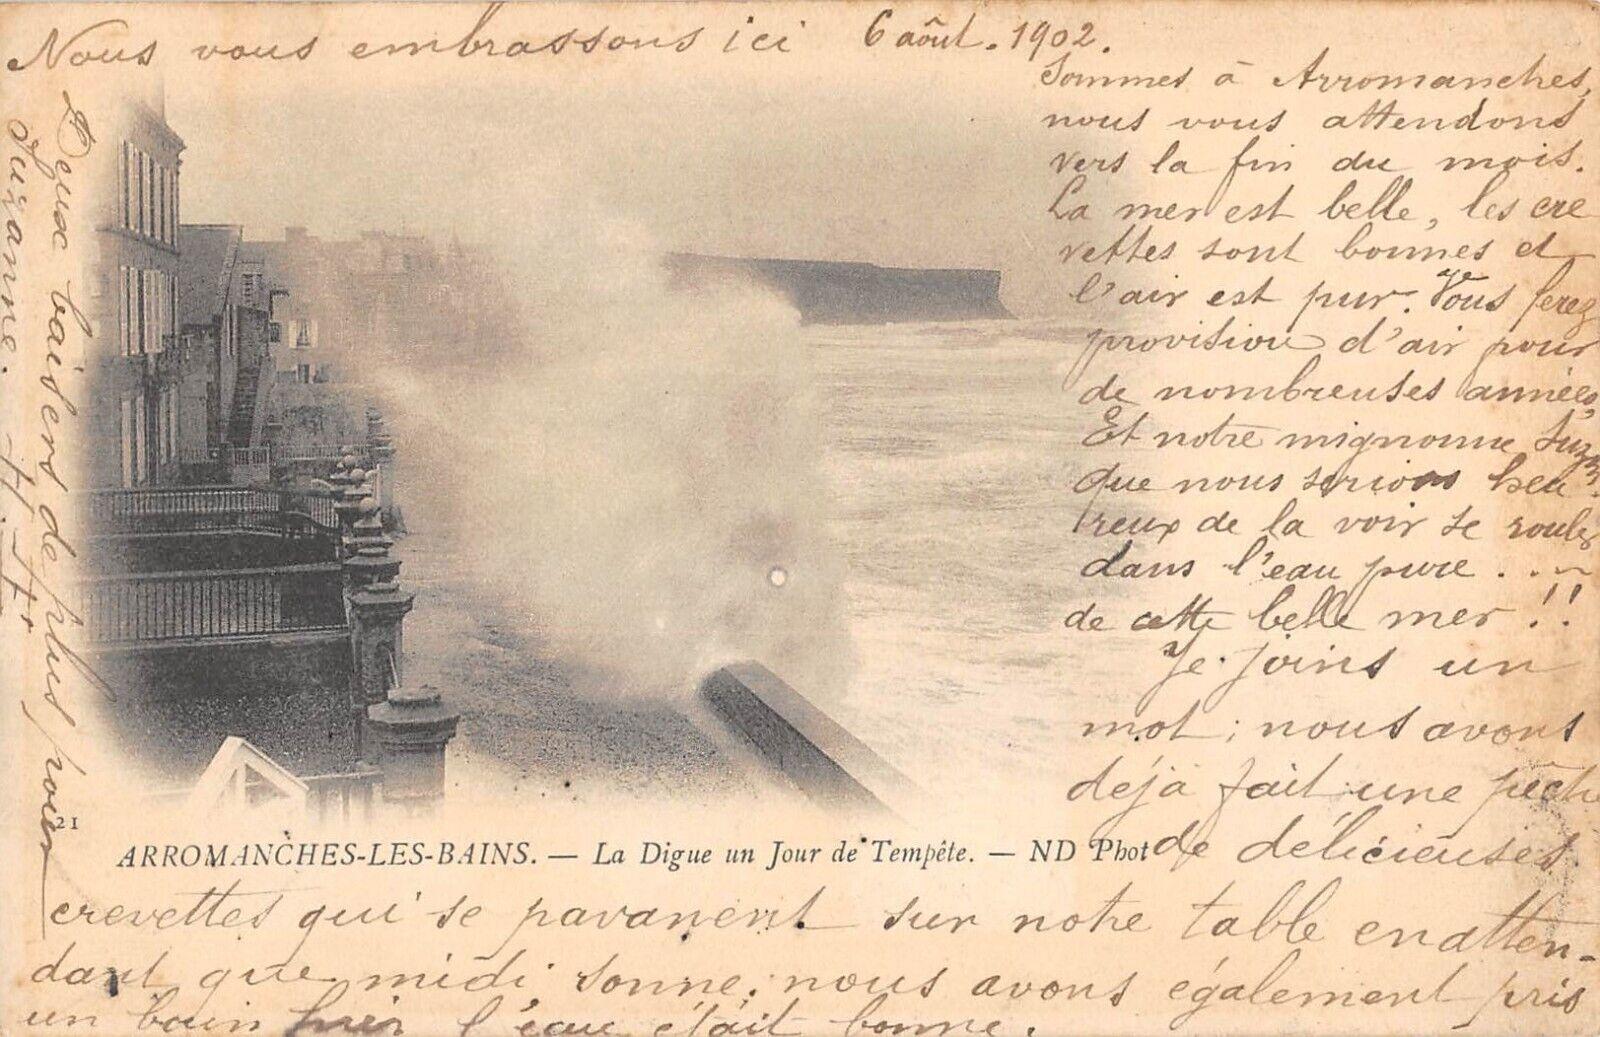 Nous vous embrassons ici 6 août. 1902.
Sommes à Arromanches,
nous vous attendons
vers la fin du mois.
La mer est belle, les cre
vettes sont bonnes et
l'air est pur. Vous ferez
provision d'air pour
de nombreuses années,
Et notre mignonne Suzon
que nous serions heu
reux de la voir se rouler
dans l'eau pure . . ~
de cette belle mer !!
Je joins un
mot; nous avons
déjà fait une pêche
de délicieuses
crevettes qui se pavanent sur notre table en atten-
dant que midi sonne; nous avons également pris
un bain hier l'eau était bonne.
Deux baisers de plus pour
Suzanne.
21
ARROMANCHES-LES-BAINS. — La Digue un Jour de Tempête. — ND Phot